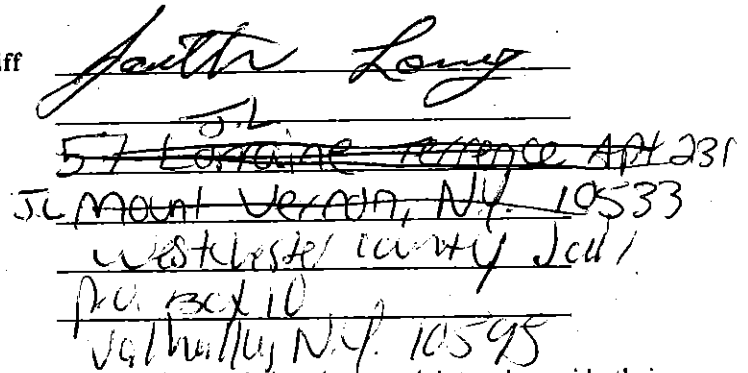 iff Long
J.L
57 Lorraine terrence Apt 231
JL Mount Vernon, N.Y. 10533
Westchester County Jail
P.O. Box 10
Valhalla, N.Y. 10595